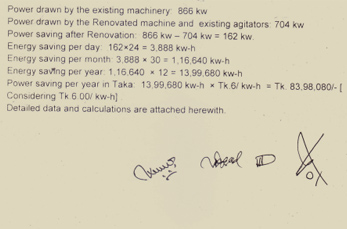 Power drawn by the existing machinery: 866 kw
Power drawn by the Renovated machine and existing agitators: 704 kw
Power saving after Renovation: 866 kw – 704 kw = 162 kw.
Energy saving per day: 162×24 = 3,888 kw-h
Energy saving per month: 3,888 × 30 = 1,16,640 kw-h
Energy saving per year: 1,16,640 × 12 = 13,99,680 kw-h
Power saving per year in Taka: 13,99,680 kw-h × Tk.6/ kw-h = Tk. 83,98,080/- [
Considering Tk.6.00/ kw-h]
Detailed data and calculations are attached herewith.